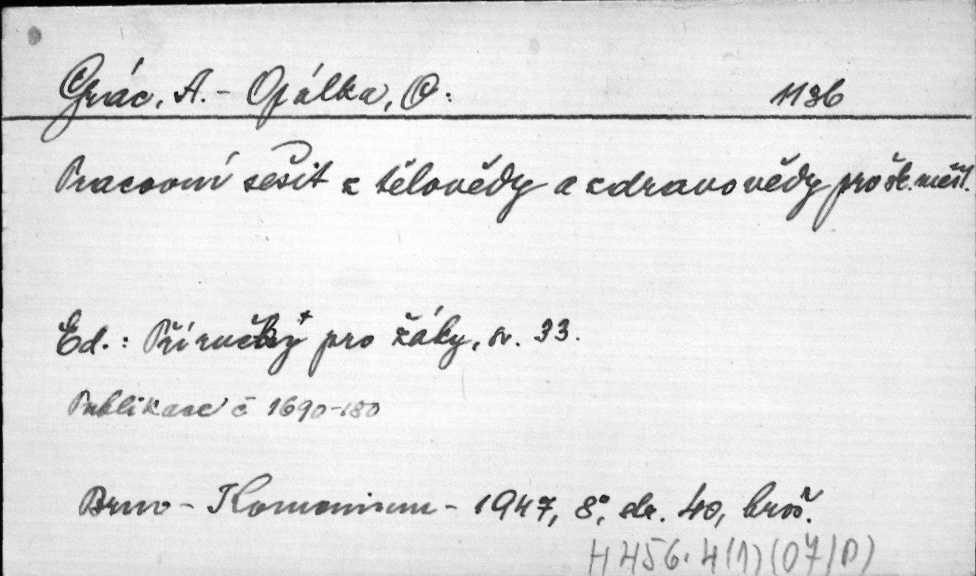 Grác, A. - Opálka, O: 1136
Pracovní sešit z tělovědy a zdravovědy pro šk. měšť.
Ed.: Příručky pro žáky, sv. 33.
Publikace č 1690-180
Brno - Komenium - 1947, 8°, str. 40, brož.
H 456.4(1)(07/D)